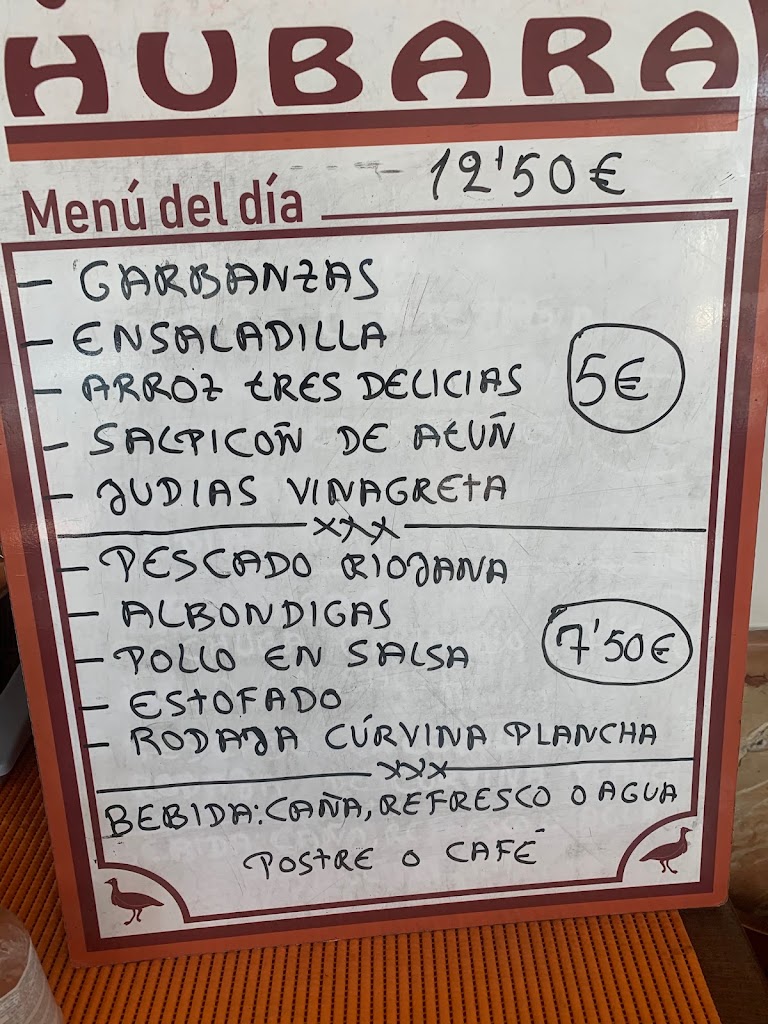 HUBARA
Menú del día 12'50€
- GARBANZAS
- ENSALADILLA
- ARROZ TRES DELICIAS
5€
- SALPICOÑ DE ATUÑ
- JUDIAS VINAGRETA
XXX
- PESCADO RIOJANA
- ALBONDIGAS
- POLLO EN SALSA
7'50€
- ESTOFADO
- RODAJA CÚRVINA PLANCHA
XXX
BEBIDA: CAÑA, REFRESCO O AGUA
POSTRE O CAFÉ